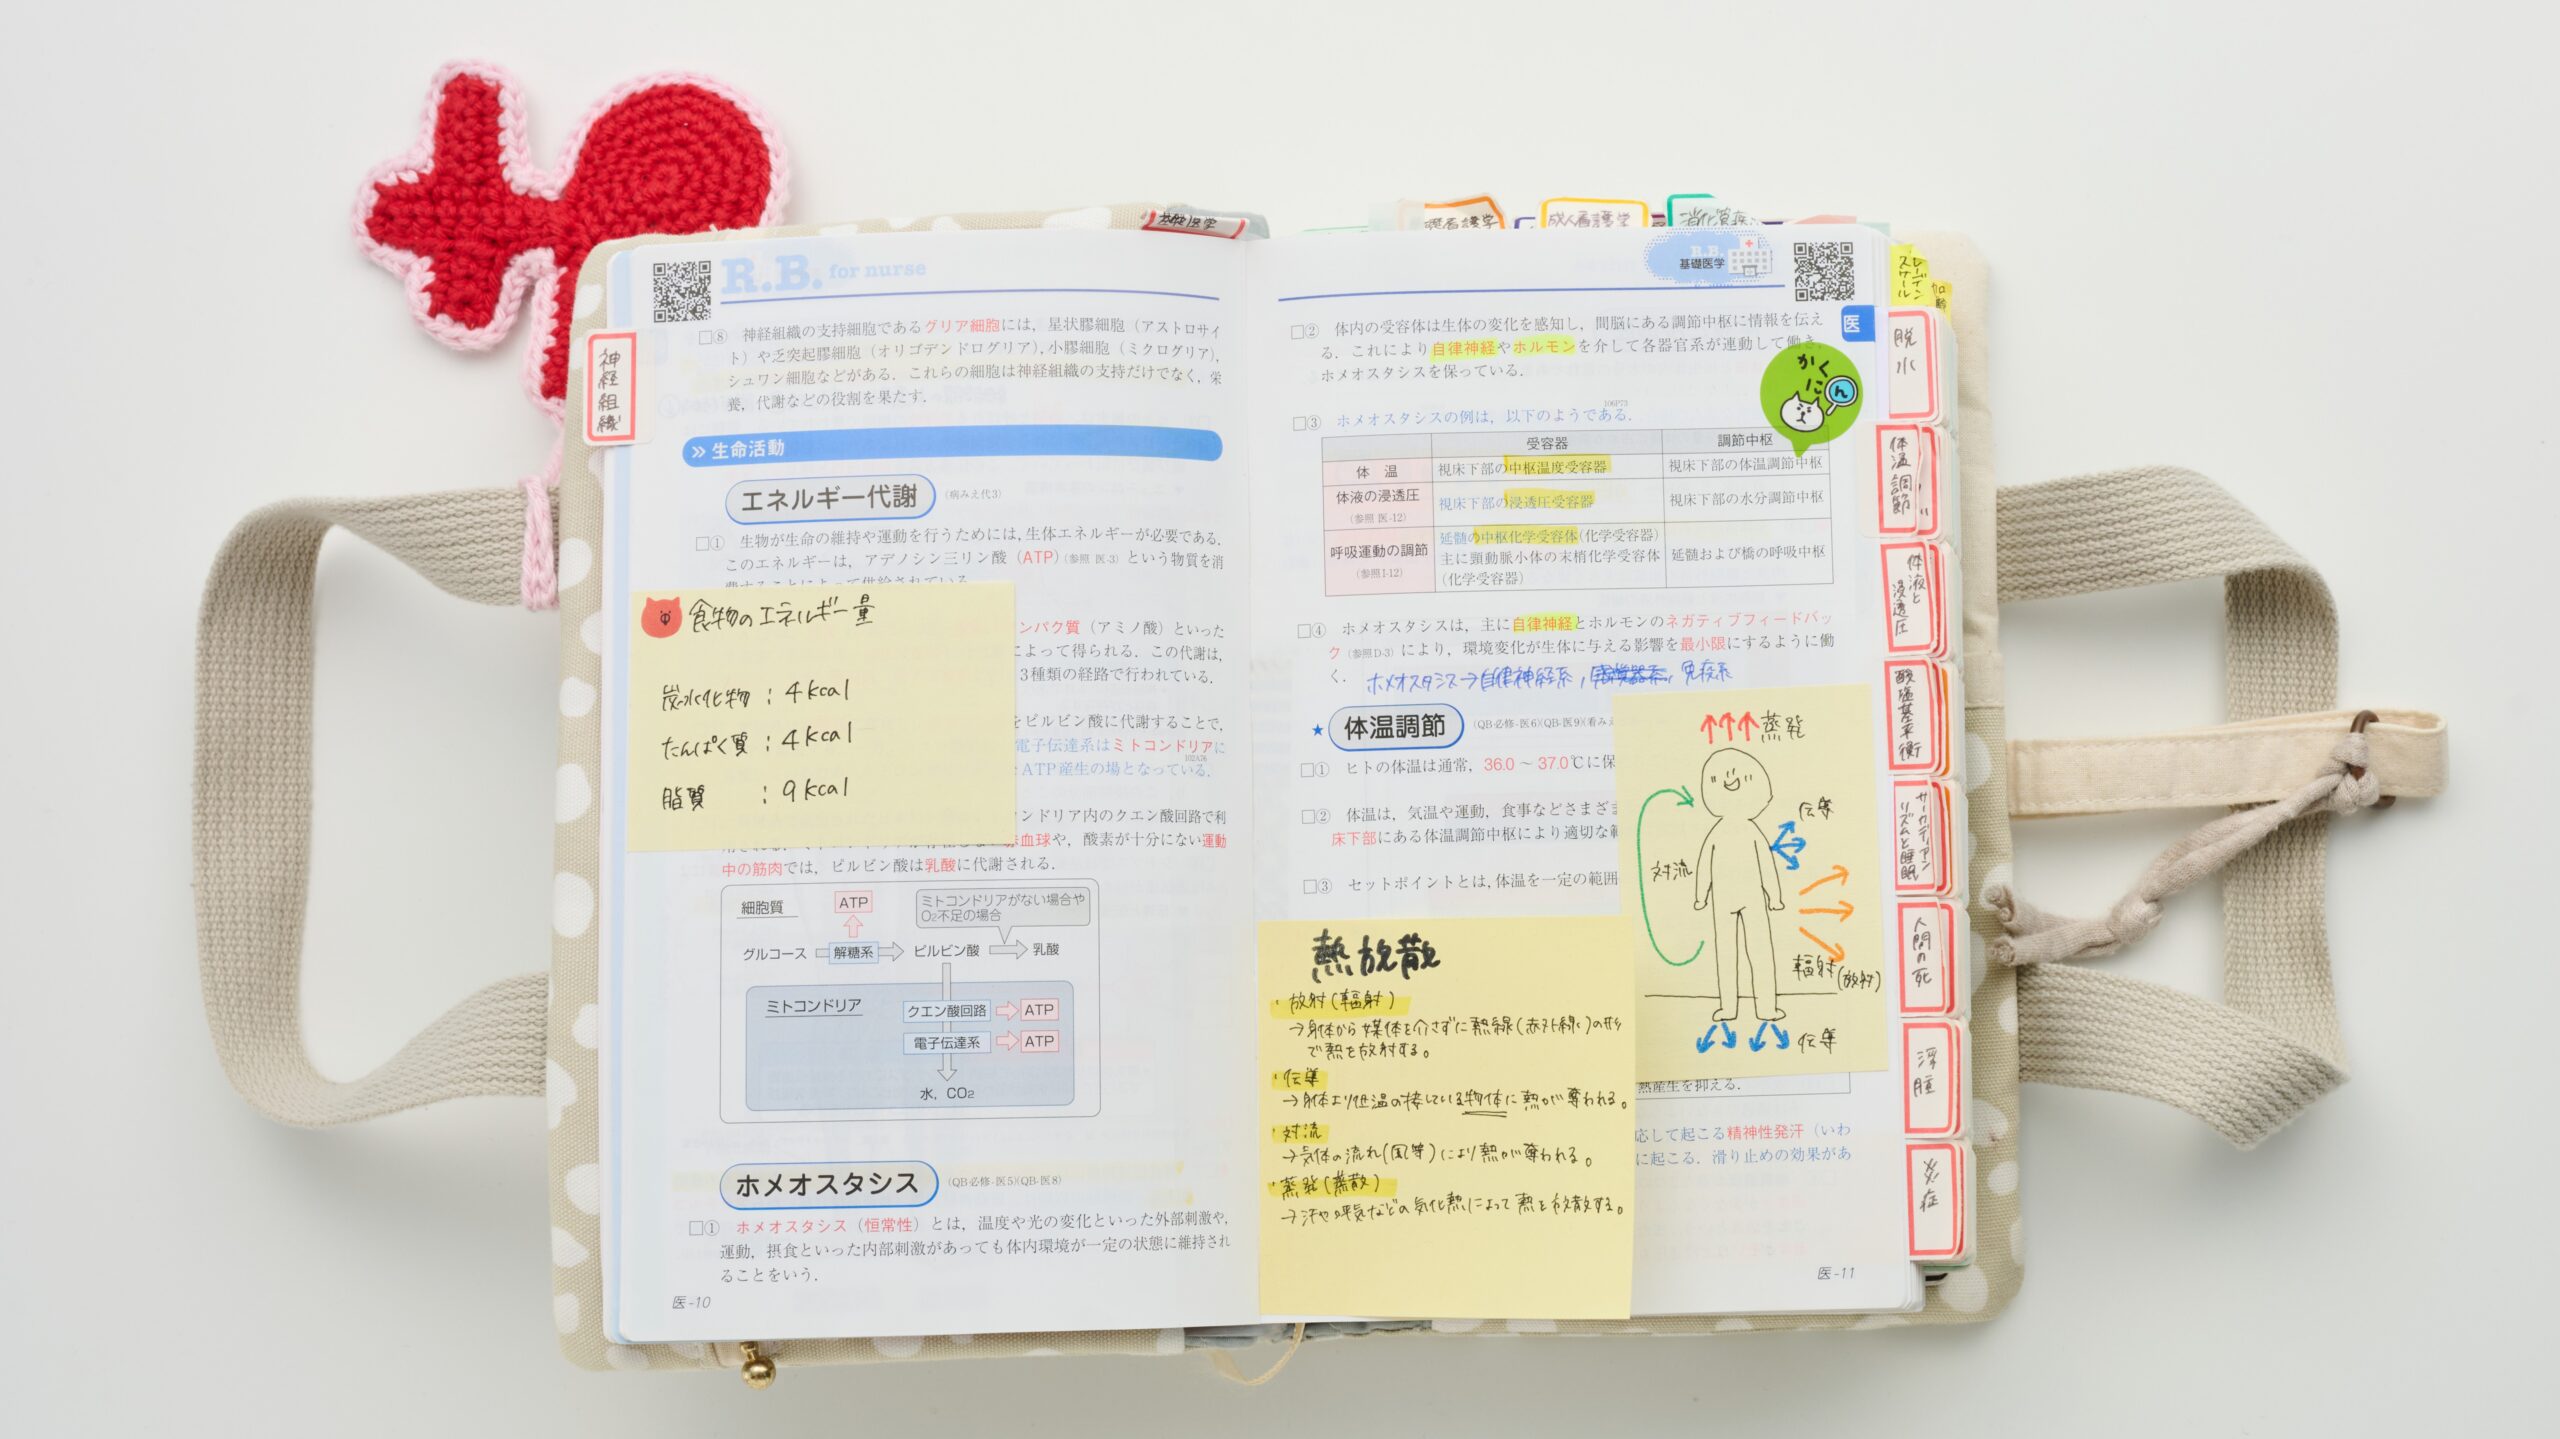 基礎医学
R.B. for nurse
神経組織
□⑧ 神経組織の支持細胞であるグリア細胞には，星状膠細胞（アストロサイ
ト）や乏突起膠細胞（オリゴデンドログリア），小膠細胞（ミクログリア），
シュワン細胞などがある．これらの細胞は神経組織の支持だけでなく，栄
養，代謝などの役割を果たす．
» 生命活動
エネルギー代謝 (病みえ代3)
□① 生物が生命の維持や運動を行うためには，生体エネルギーが必要である．
このエネルギーは，アデノシン三リン酸（ATP）(参照 医-3) という物質を消
費することによって供給されている．
食物のエネルギー量
炭水化物：4kcal
たんぱく質：4kcal
脂質：9kcal
ンパク質（アミノ酸）といった
によって得られる．この代謝は，
3種類の経路で行われている．
をピルビン酸に代謝することで，
電子伝達系はミトコンドリアに
102A76
ATP産生の場となっている．
ンドリア内のクエン酸回路で利
赤血球や，酸素が十分にない運動
中の筋肉では，ピルビン酸は乳酸に代謝される．
細胞質
ATP
ミトコンドリアがない場合や
O2不足の場合
グルコース 解糖系 ピルビン酸 乳酸
ミトコンドリア
クエン酸回路 ATP
電子伝達系 ATP
水，CO2
ホメオスタシス (QB必修-医5)(QB-医8)
□① ホメオスタシス（恒常性）とは，温度や光の変化といった外部刺激や，
運動，摂食といった内部刺激があっても体内環境が一定の状態に維持され
ることをいう．
医-10
成人看護学
R.B.
基礎医学
医
□② 体内の受容体は生体の変化を感知し，間脳にある調節中枢に情報を伝え
る．これにより自律神経やホルモンを介して各器官系が連動して働き，
ホメオスタシスを保っている．
かくにん
106P73
□③ ホメオスタシスの例は，以下のようである．
受容器 調節中枢
体 温 視床下部の中枢温度受容器 視床下部の体温調節中枢
体液の浸透圧 (参照 医-12) 視床下部の浸透圧受容器 視床下部の水分調節中枢
呼吸運動の調節 (参照 I-12) 延髄の中枢化学受容体(化学受容器) 延髄および橋の呼吸中枢
主に頸動脈小体の末梢化学受容体
(化学受容器)
□④ ホメオスタシスは，主に自律神経とホルモンのネガティブフィードバッ
ク(参照D-3)により，環境変化が生体に与える影響を最小限にするように働
く．
ホメオスタシス→自律神経系，免疫系
★ 体温調節 (QB必修-医6)(QB-医9)(看みえ
□① ヒトの体温は通常，36.0～37.0℃に保
□② 体温は，気温や運動，食事などさまざま
床下部にある体温調節中枢により適切な範
□③ セットポイントとは，体温を一定の範囲
蒸発
伝導
対流
輻射(放射)
伝導
熱放散
・放射(輻射)
→身体から媒体を介さずに熱線(赤外線)の形
で熱を放射する。
・伝導
→身体より低温の接している物体に熱が奪われる。
・対流
→気体の流れ(風等)により熱が奪われる。
・蒸発(蒸散)
→汗や呼気などの気化熱によって熱を放散する。
熱産生を抑える．
応して起こる精神性発汗（いわ
に起こる．滑り止めの効果があ
医-11
脱水
体温調節
体液と浸透圧
酸塩基平衡
サーカディアンリズムと睡眠
人間の死
浮腫
炎症